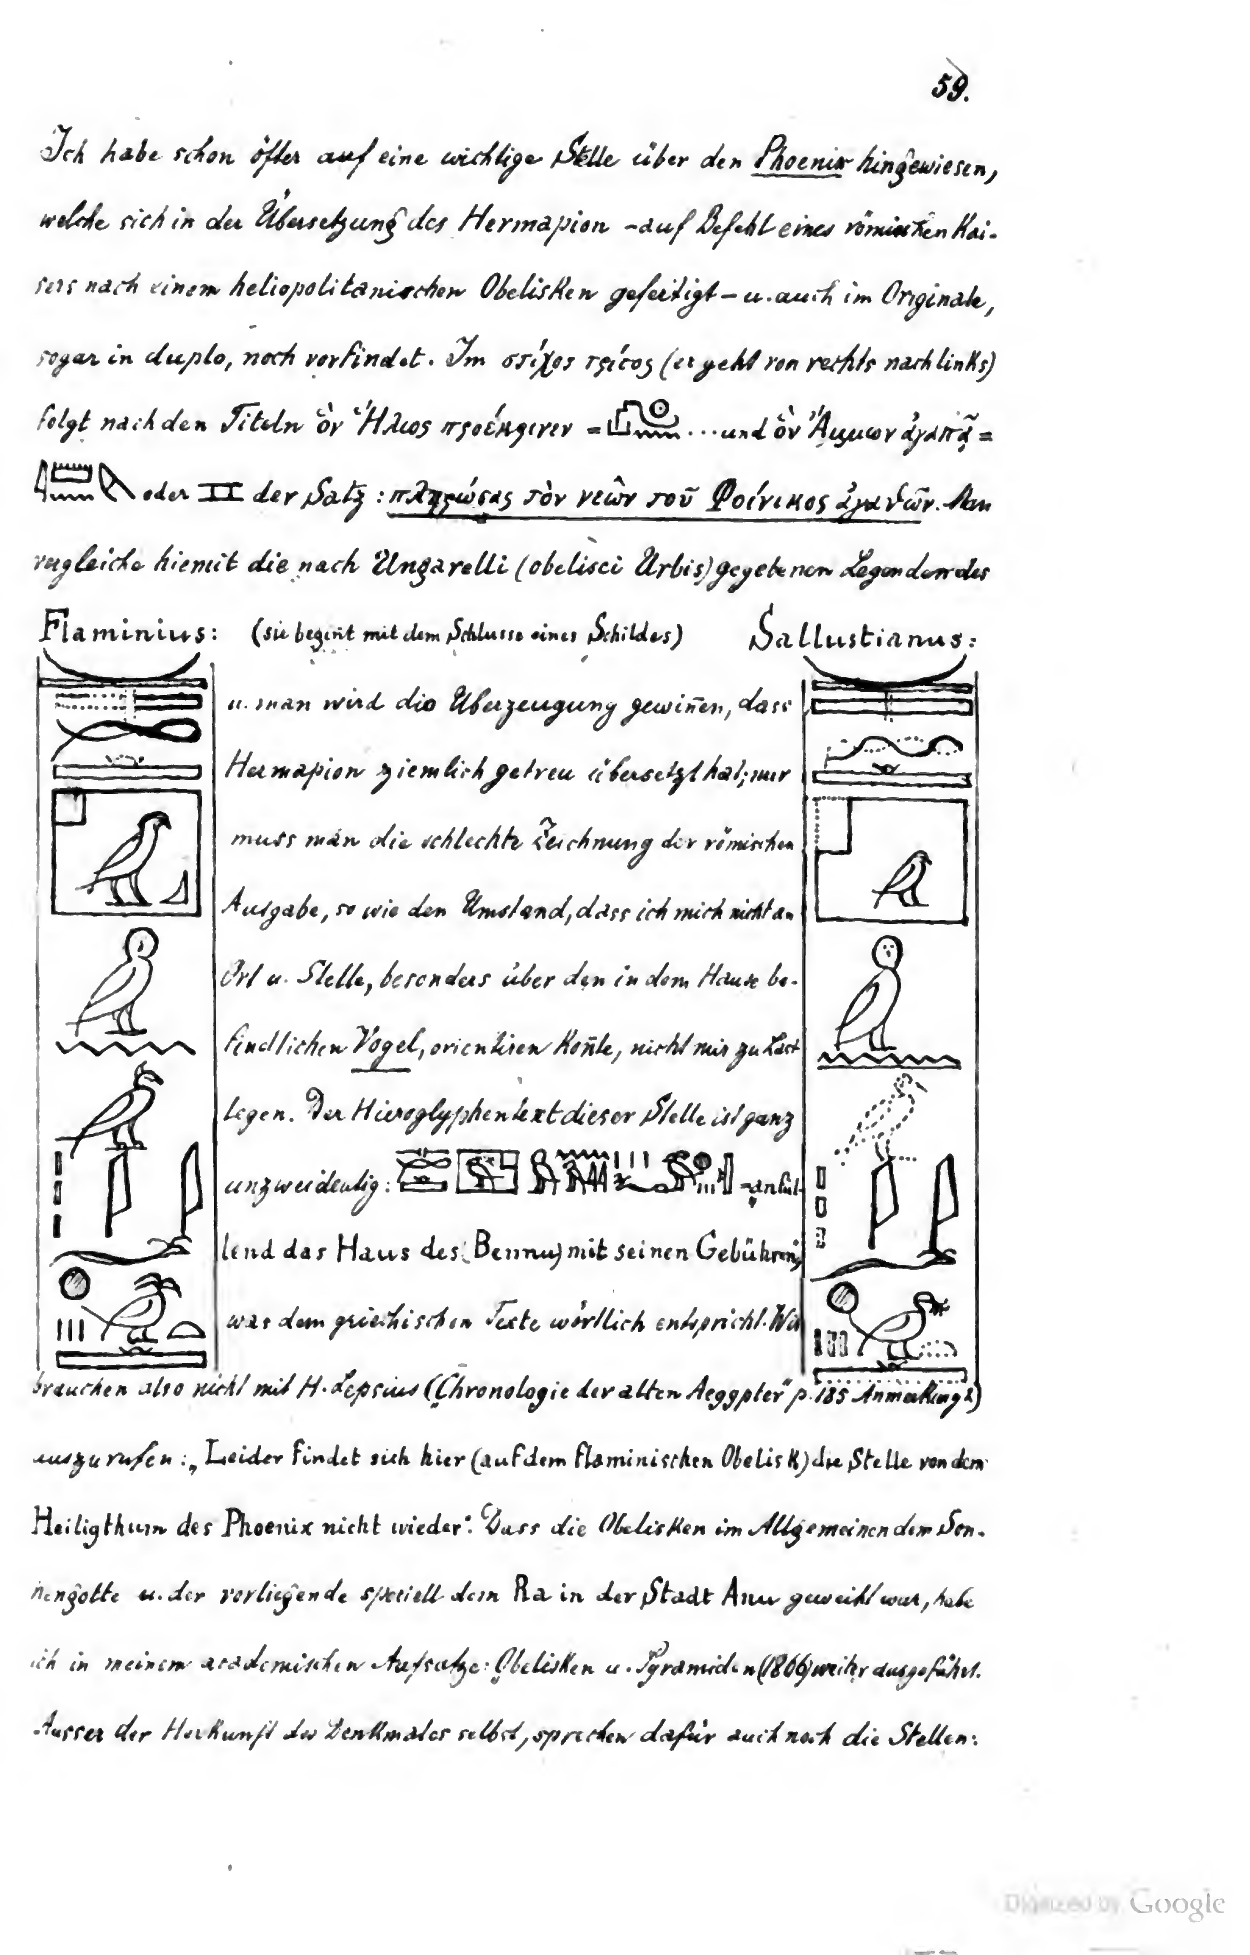 59.
Ich habe schon öfter auf eine wichtige Stelle über den Phoenix hingewiesen,
welche sich in der Übersetzung des Hermapion – auf Befehl eines römischen Kai-
sers nach einem heliopolitanischen Obelisken gefertigt – u. auch im Originale,
sogar in duplo, noch vorfindet. Im στίχος τρίτος (er geht von rechts nach links)
folgt nach den Titeln ὃν Ἥλιος προέκρινεν = ... und ὃν Ἄμμων ἀγαπᾷ =
oder der Satz: πληρώσας τὸν νεὼν τοῦ Φοίνικος ἀγαθῶν. Man
vergleiche hiemit die nach Ungarelli (obelisci Urbis) gegebenen Legenden des
Flaminius: (sie begin̄t mit dem Schlusse eines Schildes) Sallustianus:
u. man wird die Überzeugung gewin̄en, dass
Hermapion ziemlich getreu übersetzt hat; nur
muss man die schlechte Zeichnung der römischen
Ausgabe, so wie den Umstand, dass ich mich nicht an
Ort u. Stelle, besonders über den in dem Hause be-
findlichen Vogel, orientiren kon̄te, nicht mir zu Last
legen. Der Hieroglyphentext dieser Stelle ist ganz
unzweideutig: = „anfül-
lend das Haus des (Bennu) mit seinen Gebühren",
was dem griechischen Texte wörtlich entspricht. Wir
brauchen also nicht mit H. Lepsius („Chronologie der alten Aegypter" p. 185 Anmerkung 2)
auszurufen: „Leider findet sich hier (auf dem flaminischen Obelisk) die Stelle von dem
Heiligthum des Phoenix nicht wieder". Dass die Obelisken im Allgemeinen dem Son-
nengotte u. der vorliegende speciell dem Ra in der Stadt Anu geweiht war, habe
ich in meinem academischen Aufsatze: Obelisken u. Pyramiden (1866) weiter ausgeführt.
Ausser der Herkunft des Denkmales selbst, sprechen dafür auch noch die Stellen:
Digitized by Google